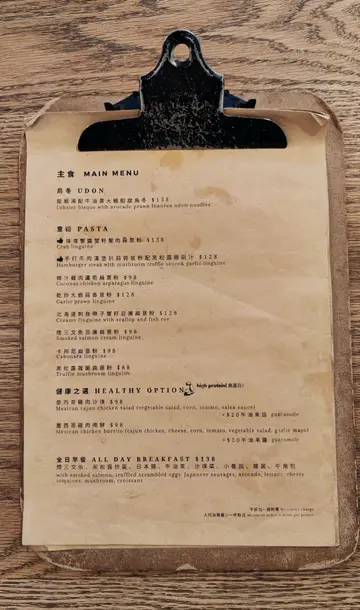 主食 MAIN MENU
烏冬 UDON
龍蝦湯配牛油果大蝦稻庭烏冬 $138
Lobster bisque with avocado prawn Inaniwa udon noodles
意粉 PASTA
$138
Crab linguine
手打牛肉漢堡扒蒜蓉意粉配黑松露菇汁 $128
Hamburger steak with mushroom truffle sauce & garlic linguine
椰汁雞肉蘆筍扁意粉 $98
Coconut chicken asparagus linguine
乾炒大蝦蒜香意粉 $128
Garlic prawn linguine
北海道刺身帶子蟹籽忌廉扁意粉 $128
Creamy linguine with scallop and fish roe
煙三文魚忌廉扁意粉 $98
Smoked salmon cream linguine
卡邦尼扁意粉 $98
Cabonara linguine
黑松露雜菌扁意粉 $88
Truffle mushroom linguine
健康之選 HEALTHY OPTION high protein! 高蛋白!
墨西哥雞肉沙律 $98
Mexican cajun chicken salad (vegetable salad, corn, tomato, salsa sauce)
+$20 牛油果醬 guacamole
墨西哥雞肉捲餅 $98
Mexican chicken burrito (cajun chicken, cheese, corn, tomato, vegetable salad, garlic mayo)
+$20 牛油果醬 guacamole
全日早餐 ALL DAY BREAKFAST $138
煙三文魚、黑松露炒蛋、日本腸、牛油果、沙律菜、小番茄、雜菌、牛角包
with smoked salmon, truffled scrambled eggs, Japanese sausages, avocado, lettuce, cherry
tomatoes, mushroom, croissant
不設加一服務費 No service charge